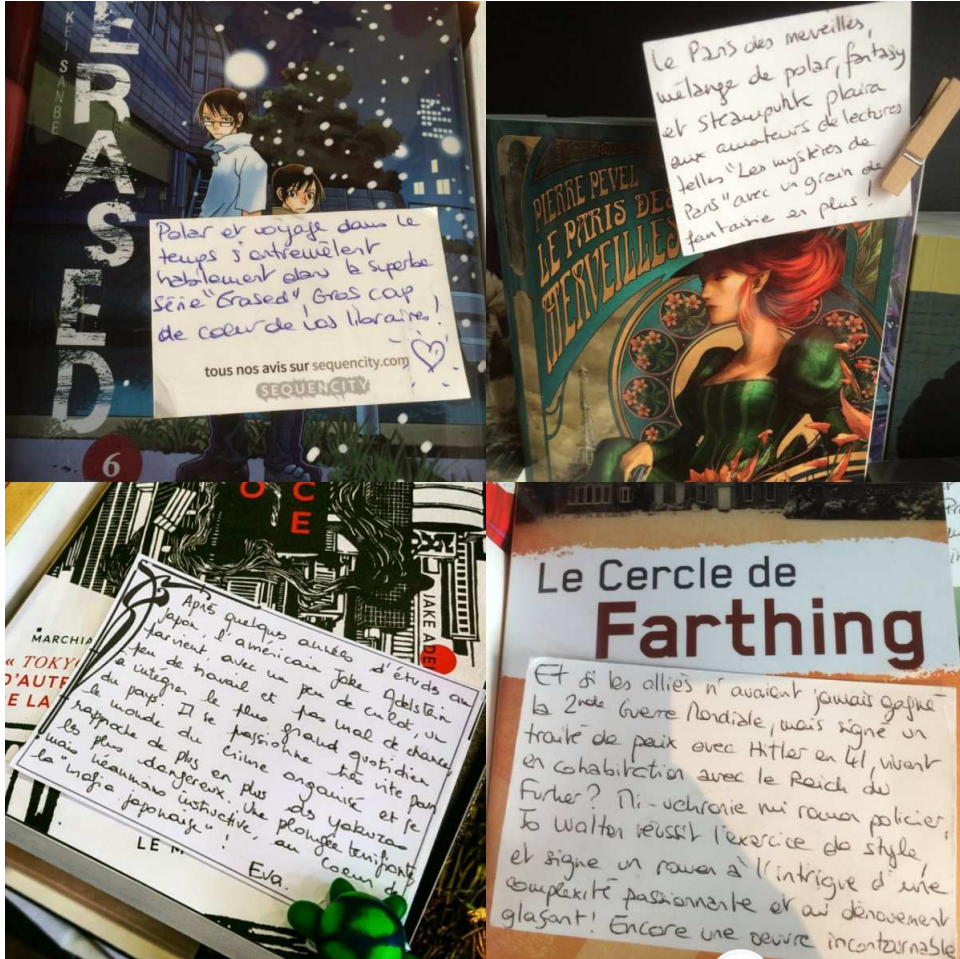 ERASED
KEI SANBE
Polar et voyage dans le
temps s'entremêlent
habilement dans la superbe
série "Erased" Gros coup
de coeur de vos libraires!
tous nos avis sur sequencity.com
SEQUENCITY
6
Le Paris des merveilles,
mélange de polar, fantasy
et steampunk plaira
aux amateurs de lectures
telles "Les mystères de
Paris" avec un grain de
fantaisie en plus !
PIERRE PEVEL
LE PARIS DES
MERVEILLES
O C
E
JAKE ADE
MARCHIA
« TOKY
D'AUTE
E LA
Après quelques années d'études au
Japon, l'américain Jake Adelstein
parvient avec un peu de culot, un
peu de travail et pas mal de chance
à intégrer le plus grand quotidien
du pays. Il se passionne très vite pour
le monde du crime organisé et se
rapproche de plus en plus des yakuzas
les plus dangereux. Une plongée terrifiante
mais néanmoins instructive, au coeur de
la "mafia japonaise" !
Eva.
LE M
Le Cercle de
Farthing
Et si les alliés n'avaient jamais gagné
la 2nde Guerre Mondiale, mais signé un
traité de paix avec Hitler en 41, vivant
en cohabitation avec le Reich du
Furher? Mi-uchronie mi roman policier,
Jo Walton réussit l'exercice de style,
et signe un roman à l'intrigue d'une
complexité passionnante et au dénouement
glaçant! Encore une oeuvre incontournable